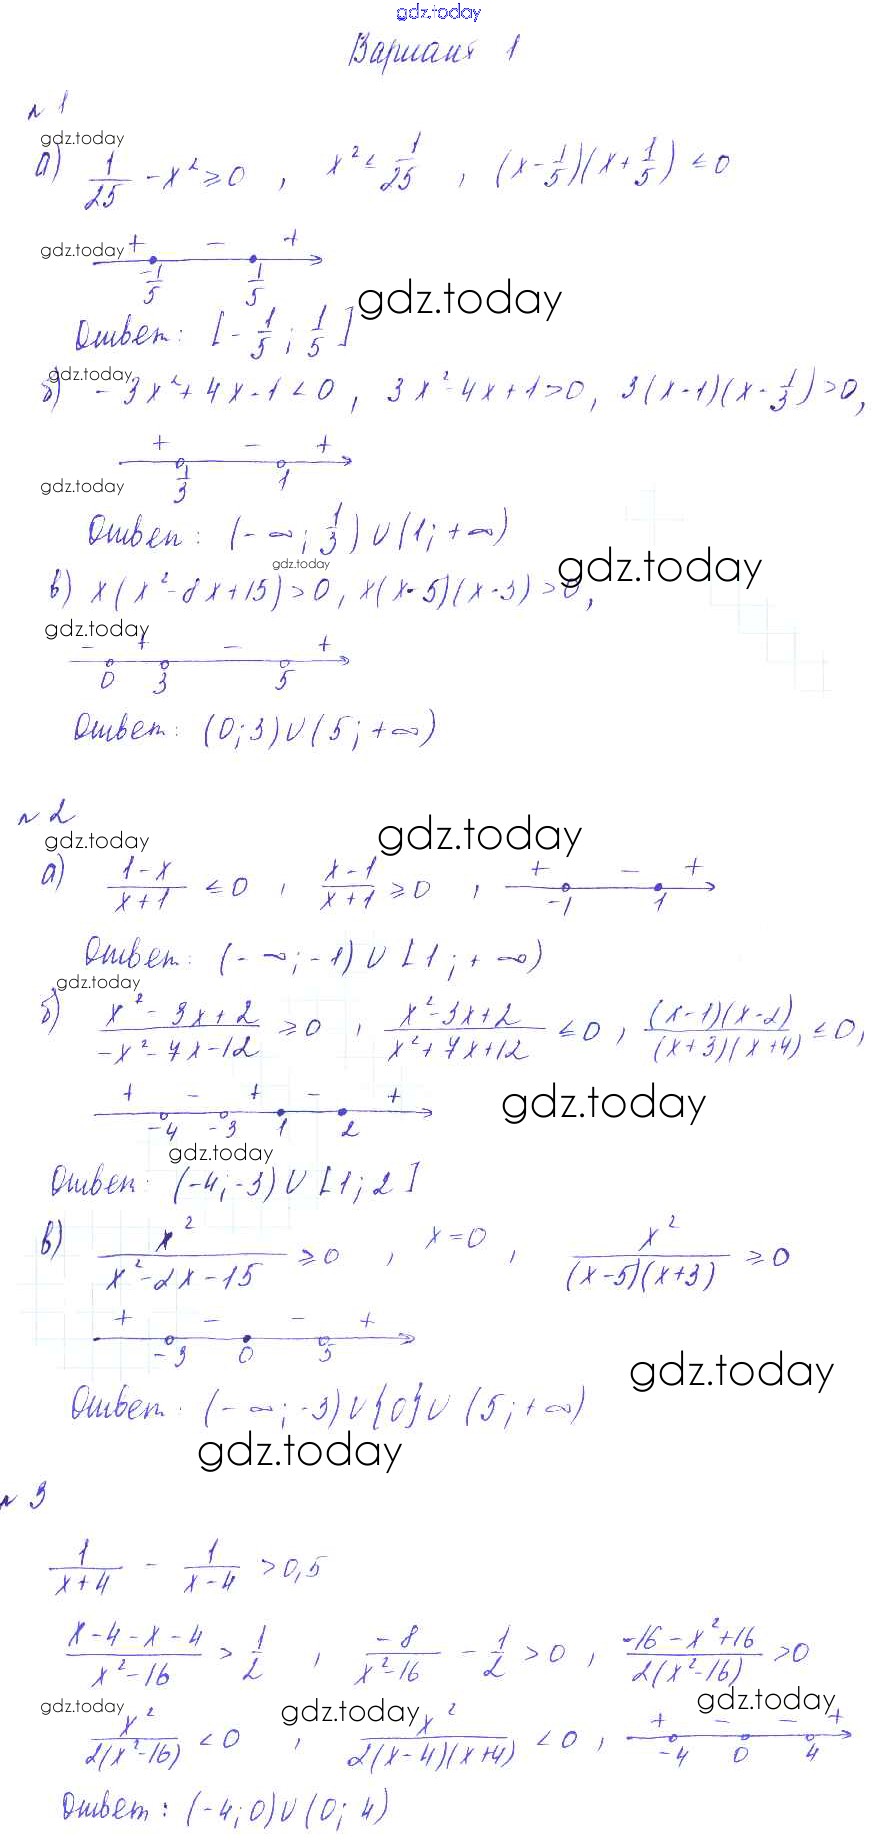 gdz.today
Вариант 1
№ 1
gdz.today
а) 1/25 - x² ≥ 0 , x² ≤ 1/25 , (x - 1/5)(x + 1/5) ≤ 0
gdz.today + - +
-1/5 1/5
gdz.today
Ответ: [-1/5; 1/5]
gdz.today
б) -3x² + 4x - 1 < 0 , 3x² - 4x + 1 > 0, 3(x - 1)(x - 1/3) > 0,
+ - +
gdz.today 1/3 1
Ответ: (-∞; 1/3) ∪ (1; +∞)
gdz.today gdz.today
в) x(x² - 8x + 15) > 0, x(x - 5)(x - 3) > 0,
gdz.today
- + - +
0 3 5
Ответ: (0; 3) ∪ (5; +∞)
№ 2
gdz.today gdz.today
а) (1-x)/(x+1) ≤ 0 , (x-1)/(x+1) ≥ 0 , + - +
-1 1
Ответ: (-∞; -1) ∪ [1; +∞)
gdz.today
б) (x² - 3x + 2)/(-x² - 7x - 12) ≥ 0 , (x² - 3x + 2)/(x² + 7x + 12) ≤ 0 , ((x-1)(x-2))/((x+3)(x+4)) ≤ 0,
+ - + - +
gdz.today
-4 -3 1 2
gdz.today
Ответ: (-4; -3) ∪ [1; 2]
в) x²/(x² - 2x - 15) ≥ 0 , x = 0 , x²/((x-5)(x+3)) ≥ 0
+ - - +
-3 0 5
gdz.today
Ответ: (-∞; -3) ∪ {0} ∪ (5; +∞)
gdz.today
№ 3
1/(x+4) - 1/(x-4) > 0,5
(x-4-x-4)/(x²-16) > 1/2 , -8/(x²-16) - 1/2 > 0 , (-16-x²+16)/(2(x²-16)) > 0
gdz.today gdz.today gdz.today
x²/(2(x²-16)) < 0 , x²/(2(x-4)(x+4)) < 0 , + - - +
-4 0 4
Ответ: (-4; 0) ∪ (0; 4)